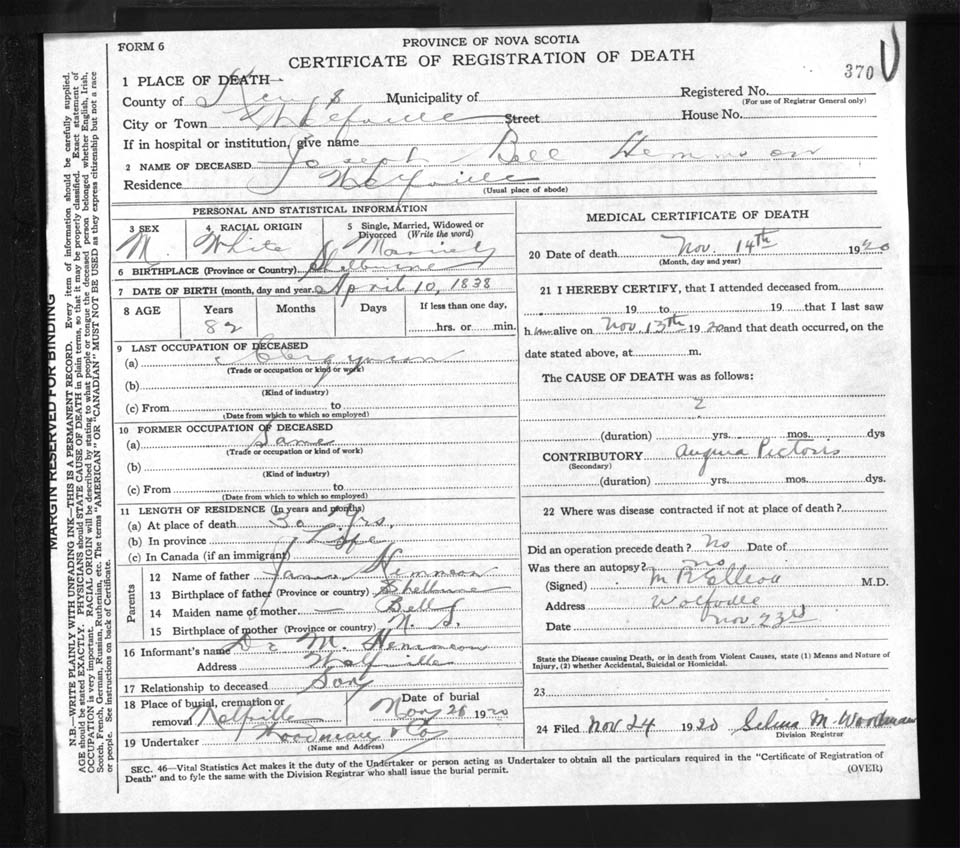 FORM 6
PROVINCE OF NOVA SCOTIA
CERTIFICATE OF REGISTRATION OF DEATH
370
1 PLACE OF DEATH
County of Kings Municipality of Registered No.
(For use of Registrar General only)
City or Town Wolfville Street House No.
If in hospital or institution, give name
2 NAME OF DECEASED Joseph Bell Hemmeon
Residence Wolfville
(Usual place of abode)
PERSONAL AND STATISTICAL INFORMATION
3 SEX M
4 RACIAL ORIGIN White
5 Single, Married, Widowed or Divorced (Write the word) Married
6 BIRTHPLACE (Province or Country) Shelburne
7 DATE OF BIRTH (month, day and year) April 10, 1838
8 AGE Years Months Days If less than one day,
82 hrs. or min.
9 LAST OCCUPATION OF DECEASED
(a) Clergyman
(Trade or occupation or kind or work)
(b)
(Kind of industry)
(c) From to
(Date from which to which so employed)
10 FORMER OCCUPATION OF DECEASED
(a) Same
(Trade or occupation or kind of work)
(b)
(Kind of industry)
(c) From to
(Date from which to which so employed)
11 LENGTH OF RESIDENCE (In years and months)
(a) At place of death 30 Yrs.
(b) In province Life
(c) In Canada (if an immigrant)
Parents
12 Name of father James Hemmeon
13 Birthplace of father (Province or country) Shelburne
14 Maiden name of mother — Bell
15 Birthplace of mother (Province or country) N. S.
16 Informant's name Dr M. Hemmeon
Address Wolfville
17 Relationship to deceased Son
18 Place of burial, cremation or removal Wolfville
Date of burial Nov 26 1920
19 Undertaker Woodman & Co
(Name and Address)
MEDICAL CERTIFICATE OF DEATH
20 Date of death Nov. 14th 1920
(Month, day and year)
21 I HEREBY CERTIFY, that I attended deceased from
19 to 19 that I last saw
h im alive on Nov. 13th 1920 and that death occurred, on the
date stated above, at m.
The CAUSE OF DEATH was as follows:
?
(duration) yrs. mos. dys
CONTRIBUTORY Angina Pectoris
(Secondary)
(duration) yrs. mos. dys.
22 Where was disease contracted if not at place of death?
Did an operation precede death? No Date of
Was there an autopsy? no
(Signed) M R Elliott M.D.
Address Wolfville
Date Nov 23rd
State the Disease causing Death, or in death from Violent Causes, state (1) Means and Nature of
Injury, (2) whether Accidental, Suicidal or Homicidal.
23
24 Filed Nov 24 1920 Selina M. Woodman
Division Registrar
SEC. 46—Vital Statistics Act makes it the duty of the Undertaker or person acting as Undertaker to obtain all the particulars required in the "Certificate of Registration of
Death" and to fyle the same with the Division Registrar who shall issue the burial permit.
(OVER)
MARGIN RESERVED FOR BINDING
N.B.—WRITE PLAINLY WITH UNFADING INK—THIS IS A PERMANENT RECORD. Every item of information should be carefully supplied.
AGE should be stated EXACTLY. PHYSICIANS should STATE CAUSE OF DEATH in plain terms, so that it may be properly classified. Exact statement of
OCCUPATION is very important. RACIAL ORIGIN will be described by stating to what people or tongue the deceased person belonged whether English, Irish,
Scotch, French, German, Russian, Ruthenian, etc. The terms "AMERICAN" OR "CANADIAN" MUST NOT BE USED as they express citizenship but not a race
or people. See instructions on back of Certificate.